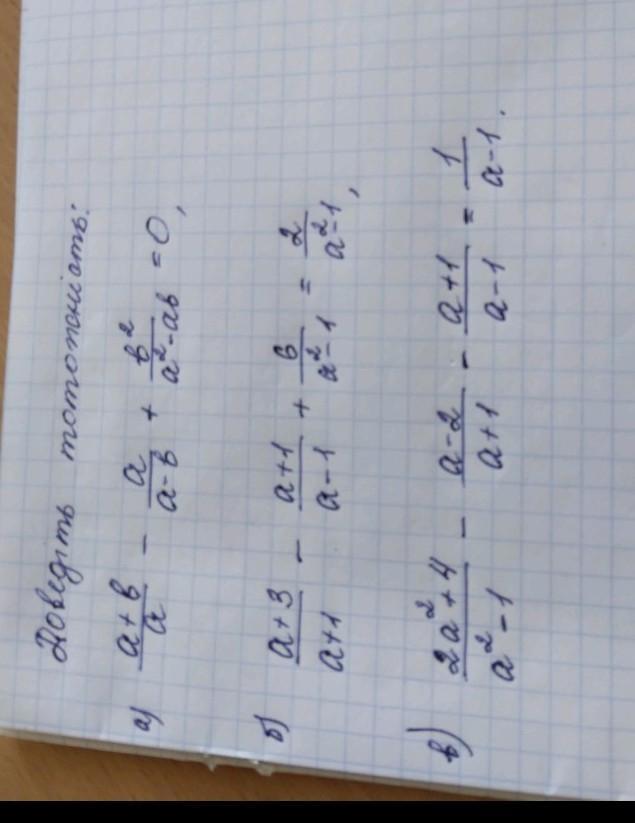 Доведіть тотожність:
а) (a+b)/a − a/(a−b) + b²/(a²−ab) = 0,
б) (a+3)/(a+1) − (a+1)/(a−1) + 6/(a²−1) = 2/(a²−1),
в) (2a²+4)/(a²−1) − (a−2)/(a+1) − (a+1)/(a−1) = 1/(a−1).